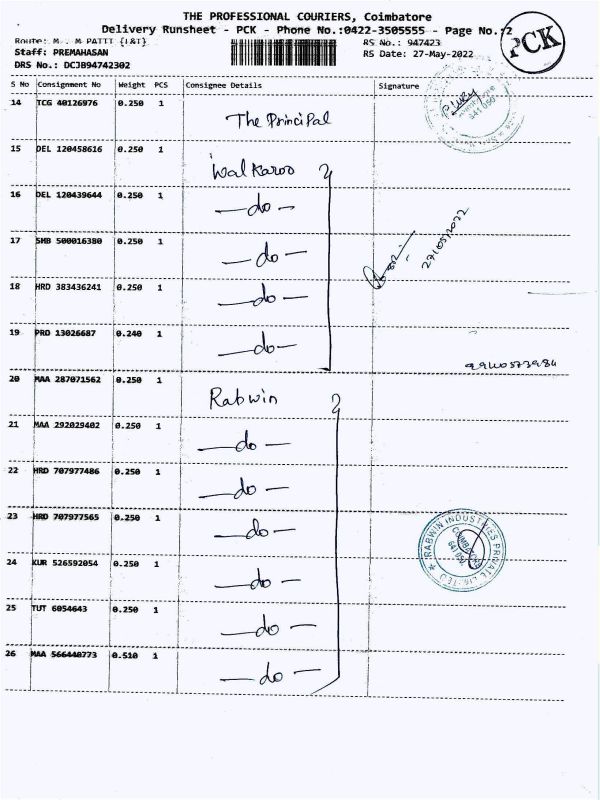 THE PROFESSIONAL COURIERS, Coimbatore
Delivery Runsheet - PCK - Phone No.:0422-3505555 - Page No.:2
PCK
Route: M PATTI {L&T} RS No.: 947423
Staff: PREMAHASAN RS Date: 27-May-2022
DRS No.: DCJB94742302
S No Consignment No Weight PCS Consignee Details Signature
14 TCG 40126976 0.250 1 The Principal
641 050
15 DEL 120458616 0.250 1 Walkaroo
16 DEL 120439644 0.250 1 —do—
27/05/2022
17 SMB 500016380 0.250 1 —do—
18 HRD 383436241 0.250 1 —do—
19 PRD 13026687 0.240 1 —do—
20 MAA 287071562 0.250 1 Rabwin
21 MAA 292029402 0.250 1 —do—
22 HRD 707977486 0.250 1 —do—
23 HRD 707977565 0.250 1 —do—
RABWIN INDUSTRIES PRIVATE LIMITED
COIMBATORE
641 050
24 KUR 526592054 0.250 1 —do—
25 TUT 6054643 0.250 1 —do—
26 MAA 566440773 0.510 1 —do—